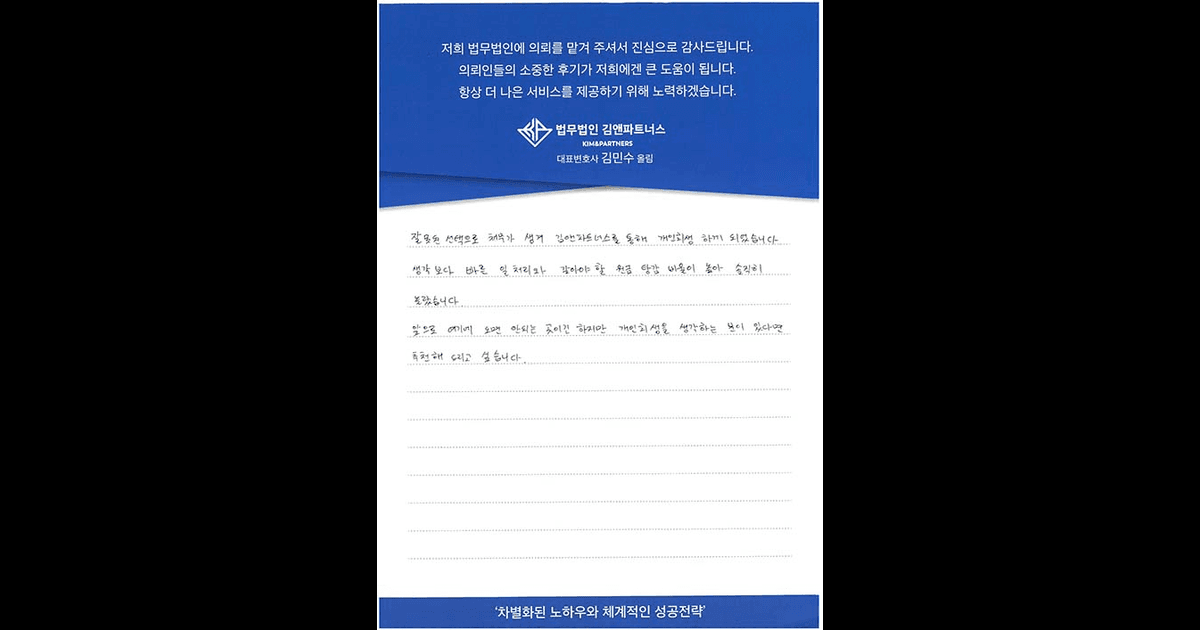 저희 법무법인에 의뢰를 맡겨 주셔서 진심으로 감사드립니다.
의뢰인들의 소중한 후기가 저희에겐 큰 도움이 됩니다.
항상 더 나은 서비스를 제공하기 위해 노력하겠습니다.
법무법인 김앤파트너스
KIM&PARTNERS
대표변호사 김민수 올림
잘못된 선택으로 채무가 생겨 김앤파트너스를 통해 개인회생 하게 되었습니다.
생각보다 빠른 일처리와 갚아야할 원금 탕감 비율이 높아 솔직히
놀랐습니다.
앞으로 여기에 오면 안되는 곳이긴 하지만 개인회생을 생각하는 분이 있다면
추천해 드리고 싶습니다.
'차별화된 노하우와 체계적인 성공전략'